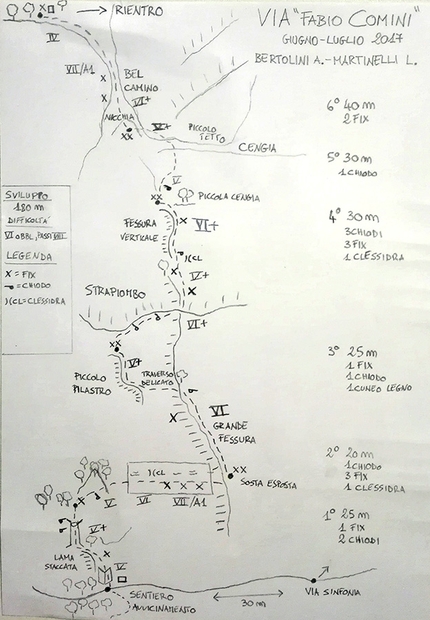 VIA "FABIO COMINI"
GIUGNO-LUGLIO 2017
BERTOLINI A.-MARTINELLI L.
RIENTRO
IV
VII/A1
BEL
CAMINO
VI+
NICCHIA
XX
V+
PICCOLO
TETTO
CENGIA
V
XX
PICCOLA CENGIA
FESSURA
VERTICALE
VI+
X
X
)(CL
X
VI+
X
STRAPIOMBO
VI+
XX
V+
PICCOLO
PILASTRO
TRAVERSO
DELICATO
X
VI
GRANDE
FESSURA
XX
SOSTA ESPOSTA
— )(CL — —
X X X
V
VI
VII/A1
X
V+
LAMA
STACCATA
X
IV
SENTIERO
AVVICINAMENTO
30 m
VIA SINFONIA
6° 40 m
2 FIX
5° 30 m
1 CHIODO
4° 30 m
3 CHIODI
3 FIX
1 CLESSIDRA
3° 25 m
1 FIX
1 CHIODO
1 CUNEO LEGNO
2° 20 m
1 CHIODO
3 FIX
1 CLESSIDRA
1° 25 m
1 FIX
2 CHIODI
SVILUPPO
180 m
DIFFICOLTÀ
VI OBBL, PASSI VIII
LEGENDA
X = FIX
= CHIODO
)(CL = CLESSIDRA